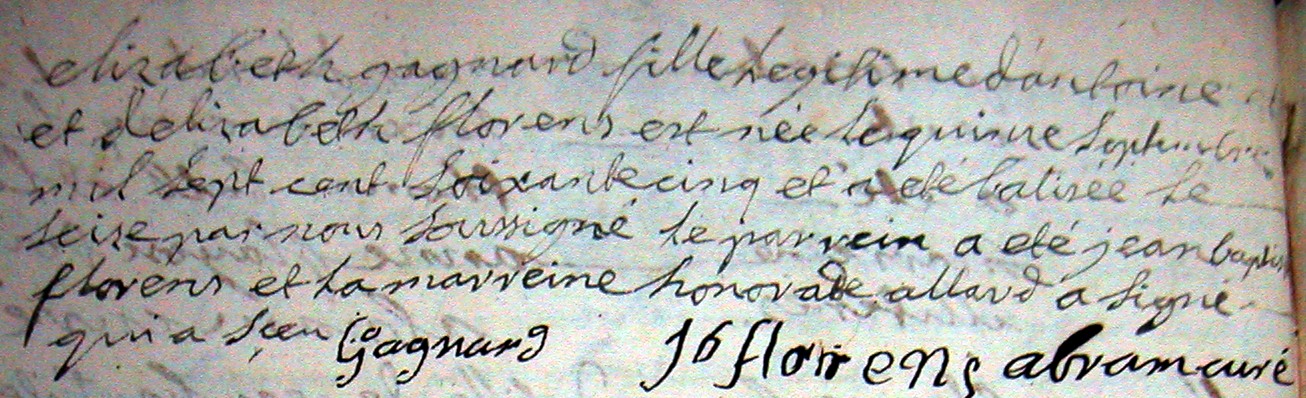 elizabeth gagnard fille legitime d'antoine
et d'elizabeth florens est née le quinze septembre
mil sept cent soixante cinq et a eté batisée le
seize par nous soussigné le parrein a eté jean baptis
florens et la marreine honorade allard a signé
qui a sceu Gagnard Jb florens abram curé